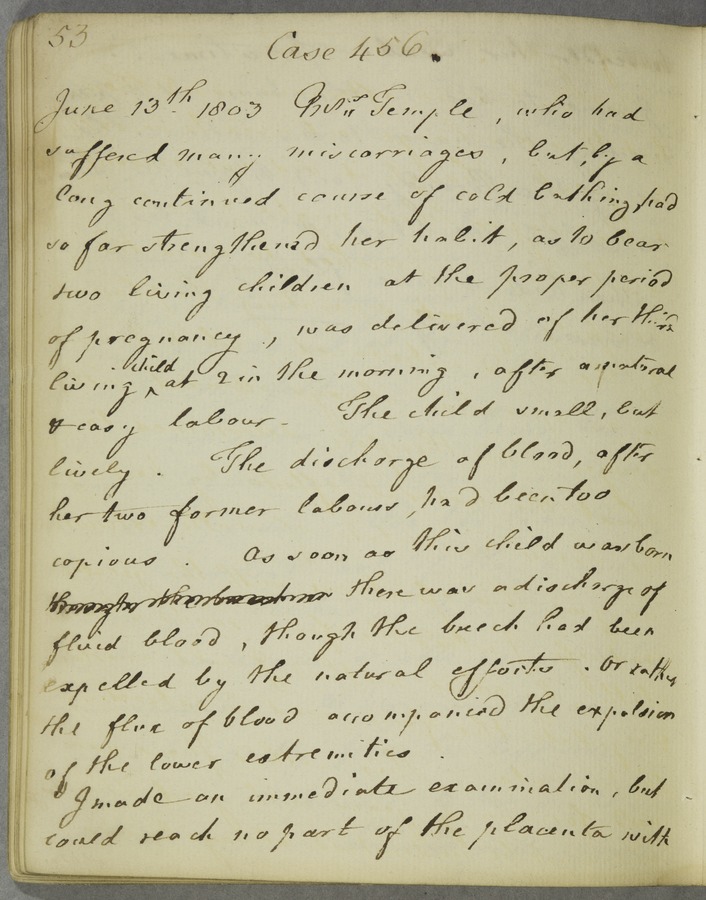 53
Case 456.
June 13th 1803 Mrs Temple, who had
suffered many miscarriages, but, by a
long continued course of cold bathing, had
so far strengthened her habit, as to bear
two living children at the proper period
of pregnancy, was delivered of her third
living child at 2 in the morning, after a natural
& easy labour. The child small, but
lively. The discharge of blood, after
her two former labours, had been too
copious. As soon as this child was born
there was a discharge of
fluid blood, though the breech had been
expelled by the natural efforts. or rather
the flux of blood accompanied the expulsion
of the lower extremities.
I made an immediate examination, but
could reach no part of the placenta with